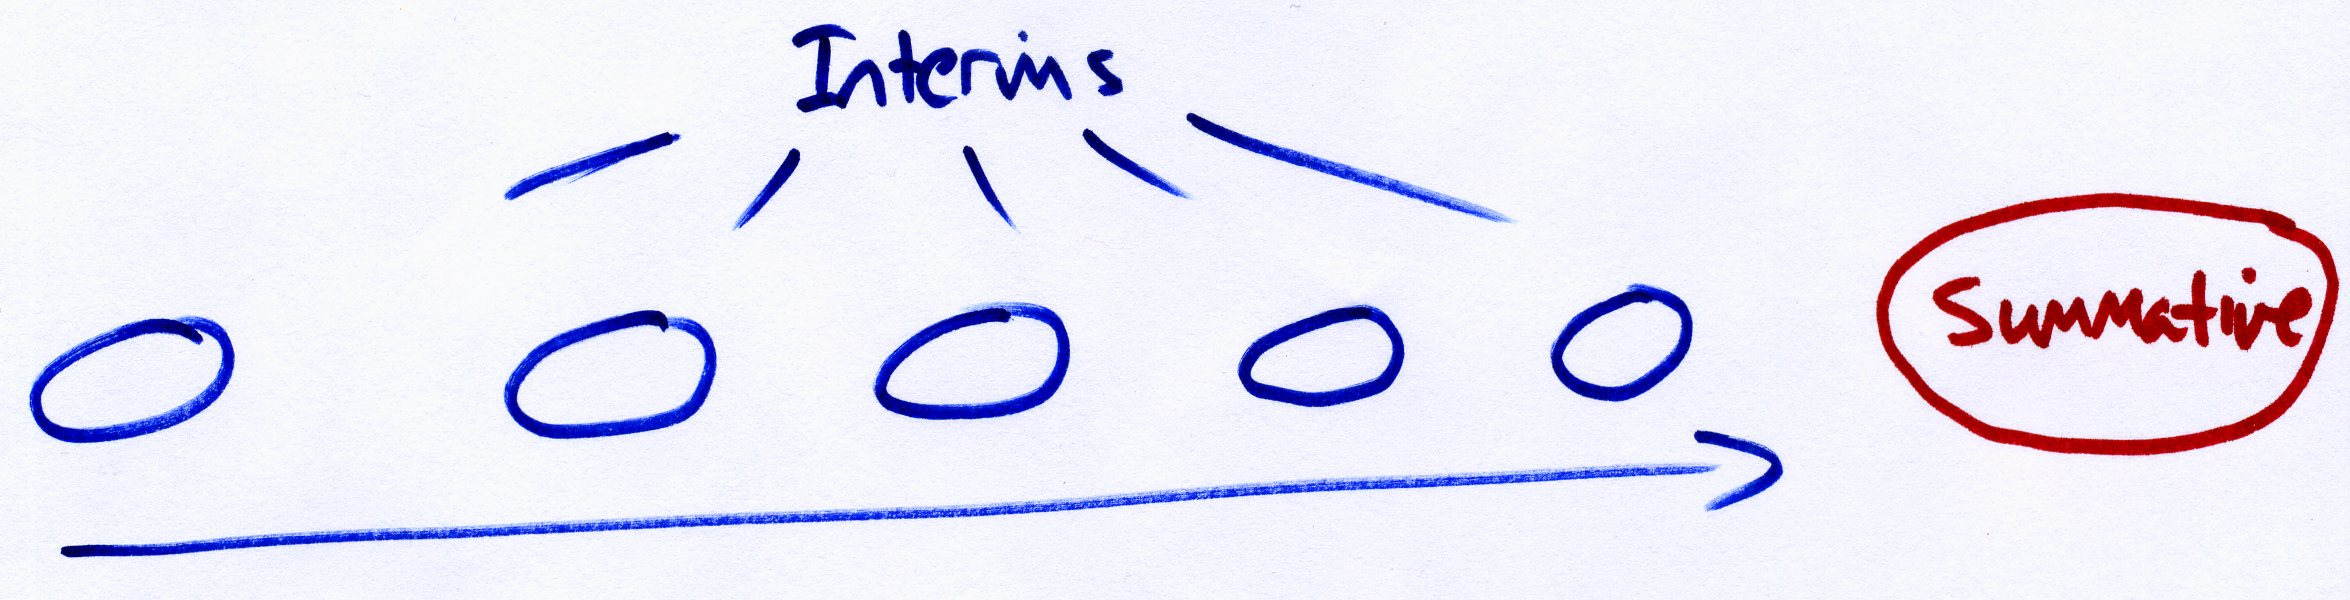 Interims
Summative